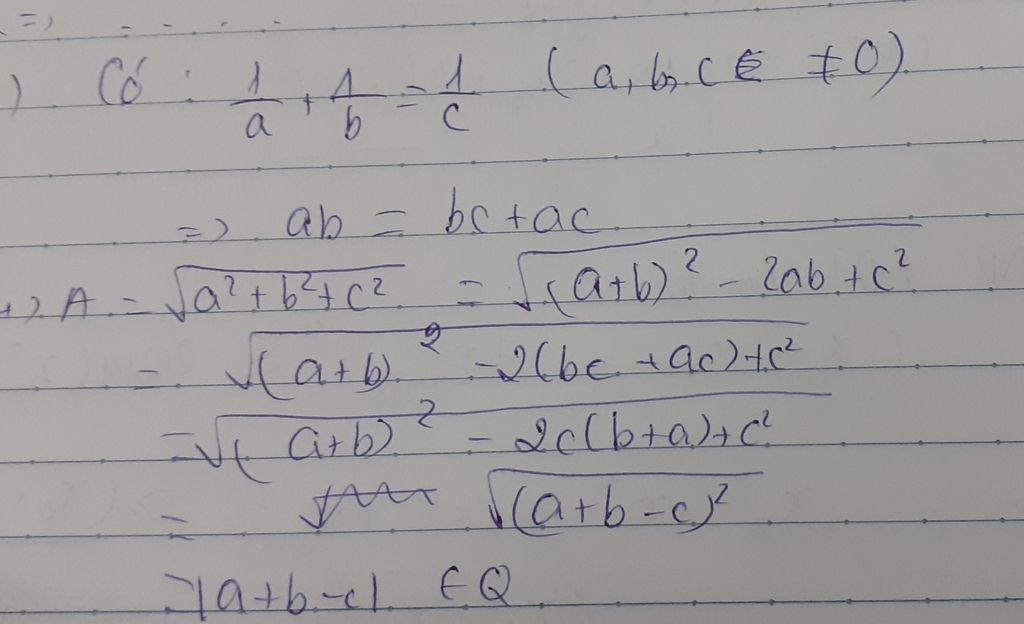 => . . . .
) Có : 1/a + 1/b = 1/c ( a, b, c ∈ ≠ 0)
=> ab = bc + ac
+) A = √(a² + b² + c²) = √((a+b)² - 2ab + c²)
= √((a+b)² - 2(bc + ac) + c²)
= √((a+b)² - 2c(b+a) + c²)
= √((a+b-c)²)
= |a+b-c| ∈ Q